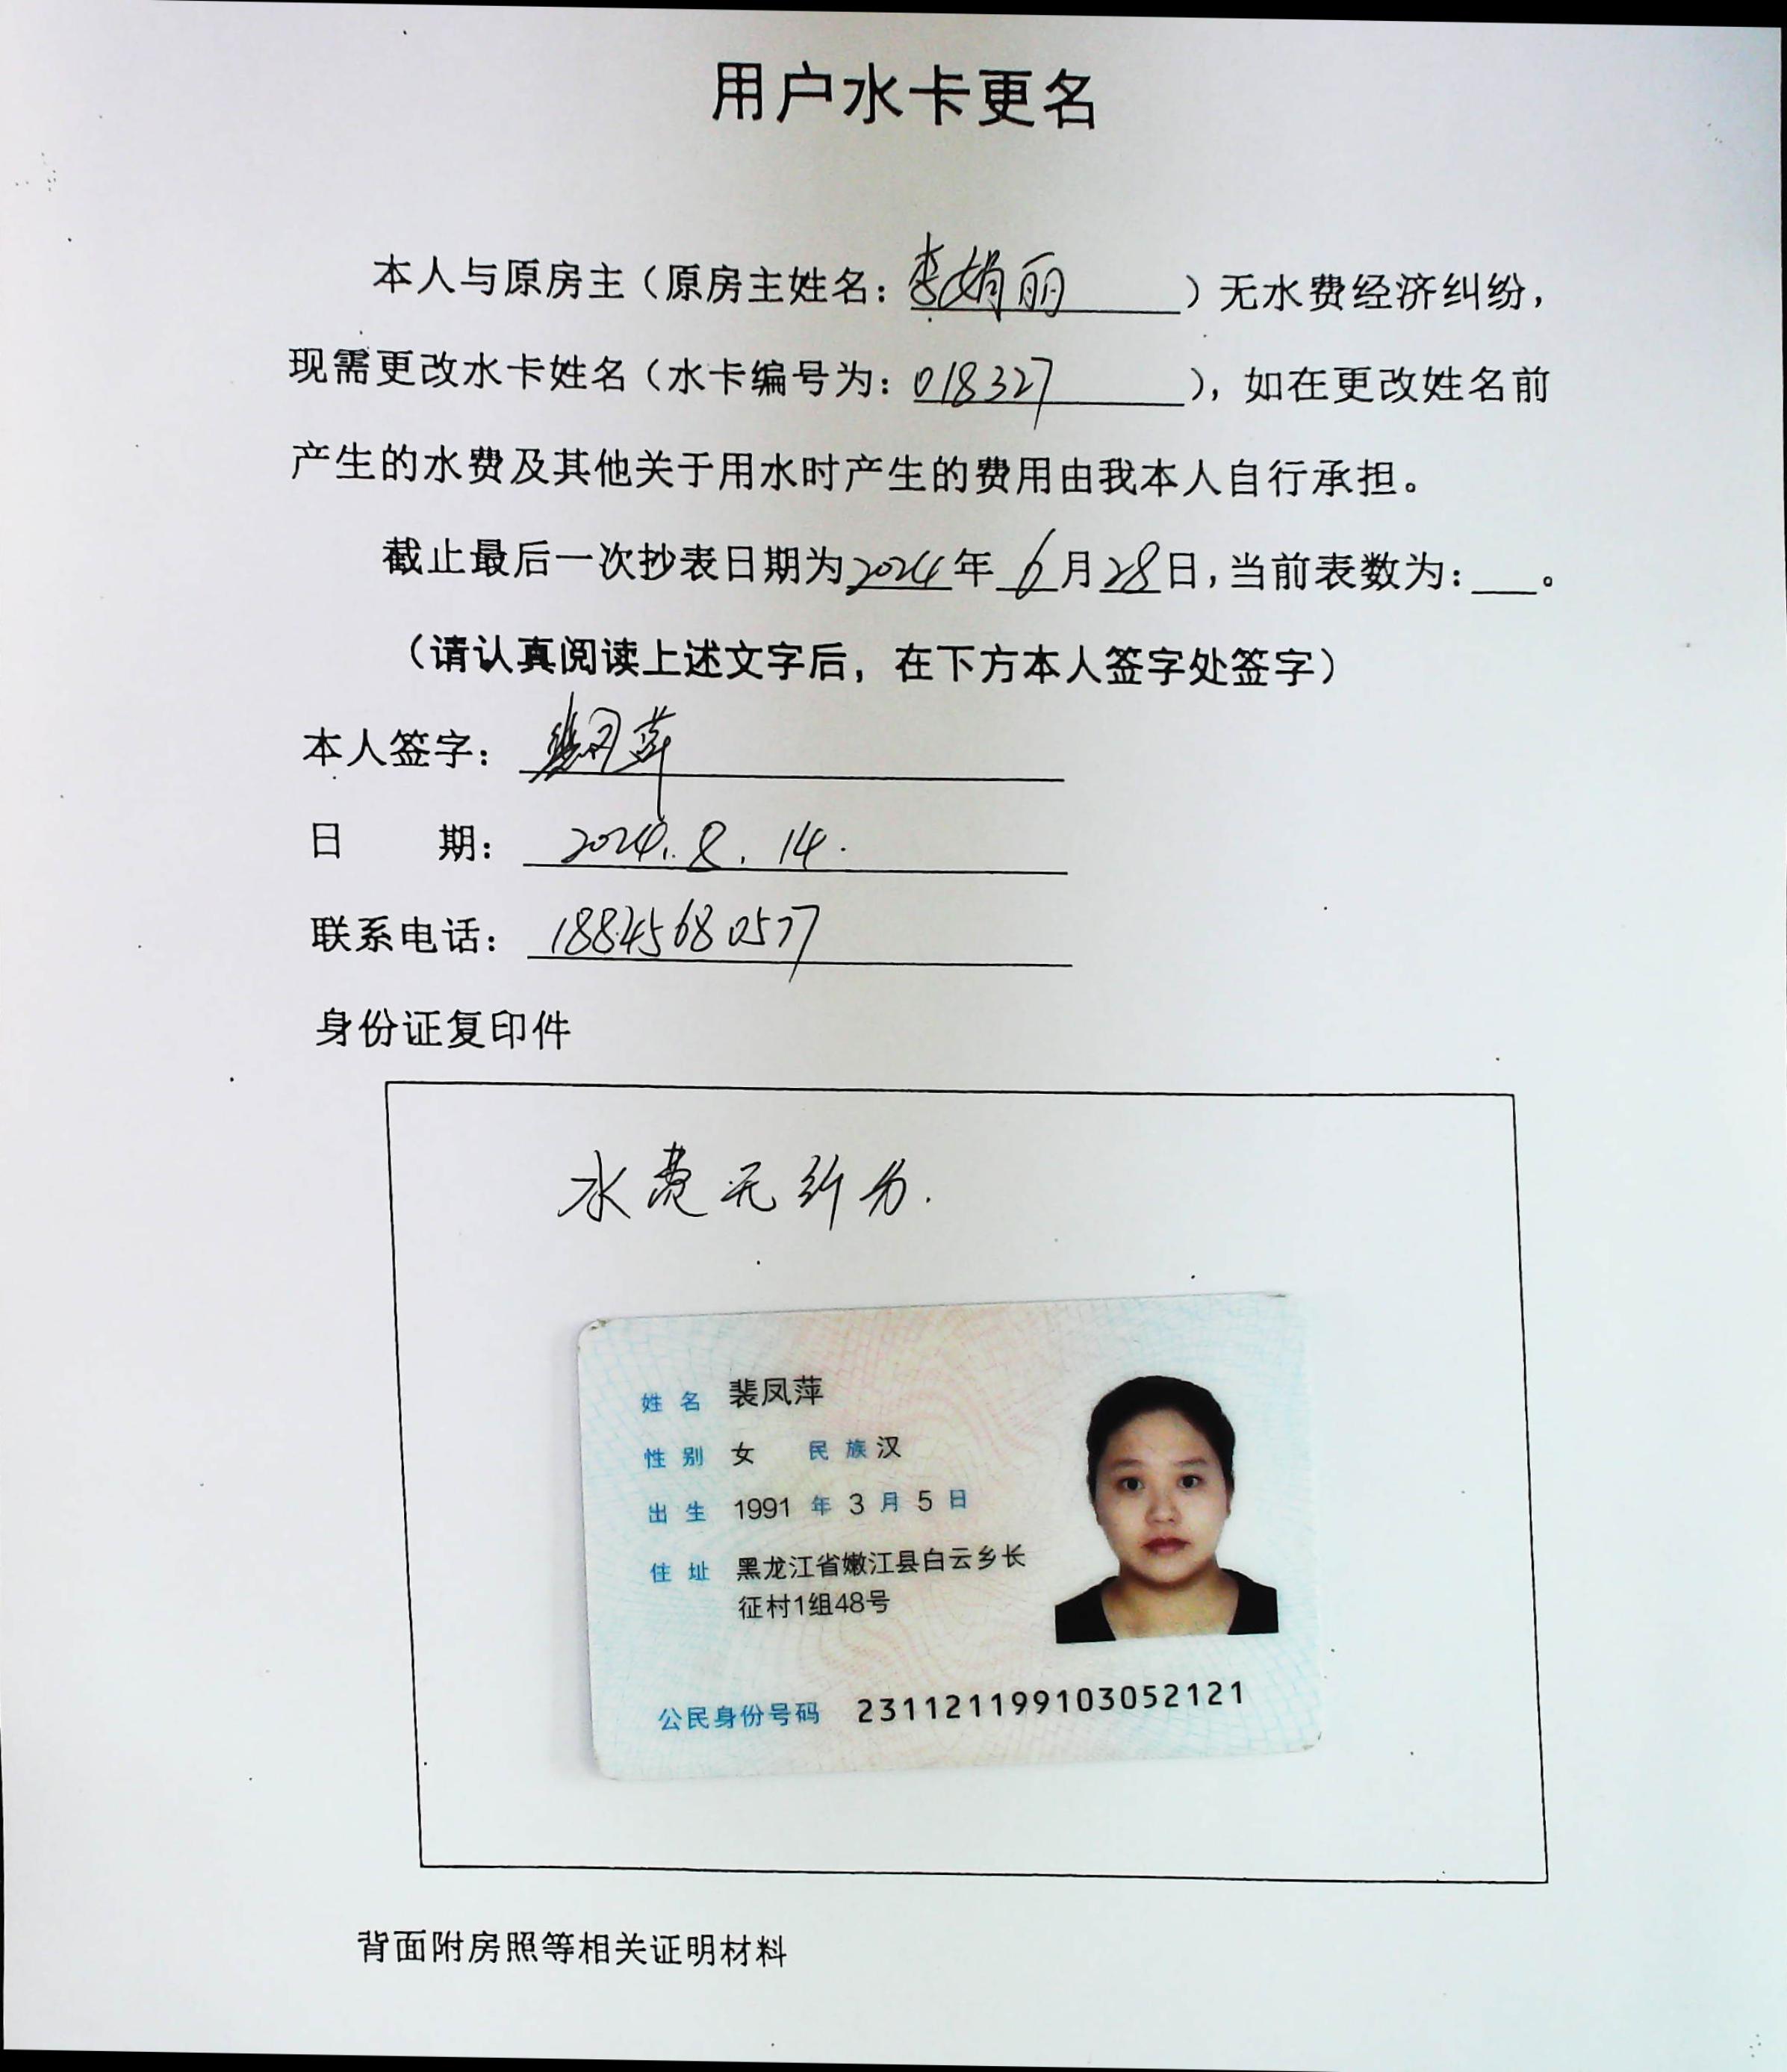 用户水卡更名
本人与原房主（原房主姓名：李娟丽）无水费经济纠纷，
现需更改水卡姓名（水卡编号为：018327），如在更改姓名前
产生的水费及其他关于用水时产生的费用由我本人自行承担。
截止最后一次抄表日期为2024年6月28日，当前表数为：___。
（请认真阅读上述文字后，在下方本人签字处签字）
本人签字：裴凤萍
日 期：2024.8.14.
联系电话：18845680577
身份证复印件
水费无纠纷.
姓名 裴凤萍
性别 女 民族 汉
出生 1991 年 3 月 5 日
住址 黑龙江省嫩江县白云乡长
征村1组48号
公民身份号码 231121199103052121
背面附房照等相关证明材料